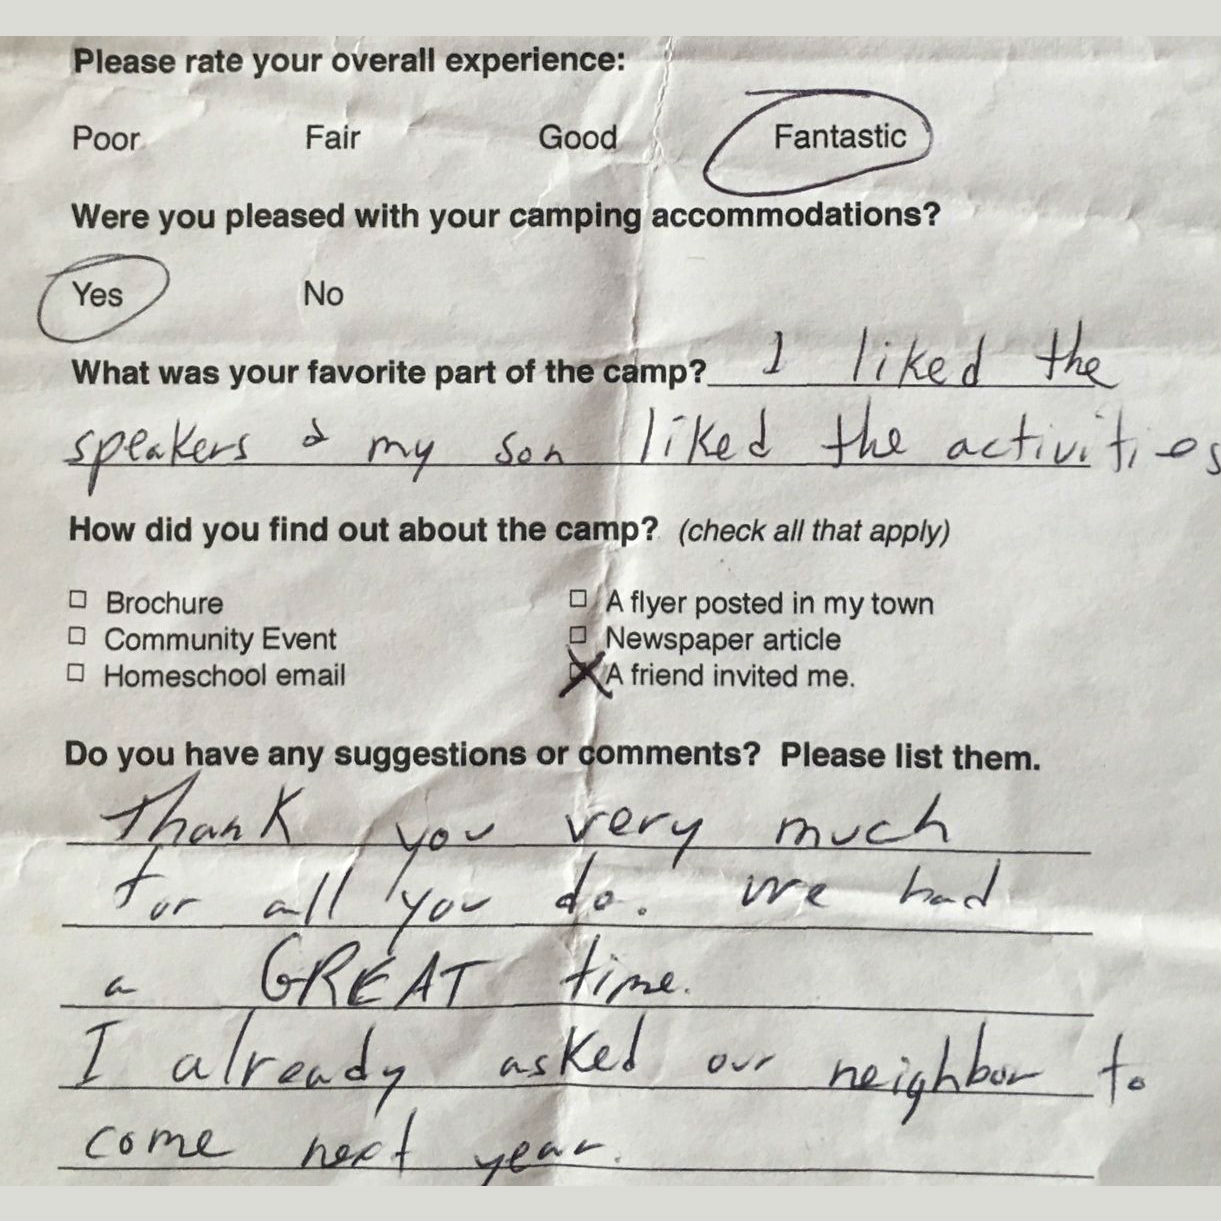 Please rate your overall experience:
Poor Fair Good Fantastic
Were you pleased with your camping accommodations?
Yes No
What was your favorite part of the camp? I liked the
speakers & my son liked the activities
How did you find out about the camp? (check all that apply)
☐ Brochure ☐ A flyer posted in my town
☐ Community Event ☐ Newspaper article
☐ Homeschool email ☒ A friend invited me.
Do you have any suggestions or comments? Please list them.
Thank you very much
for all you do. We had
a GREAT time.
I already asked our neighbor to
come next year.